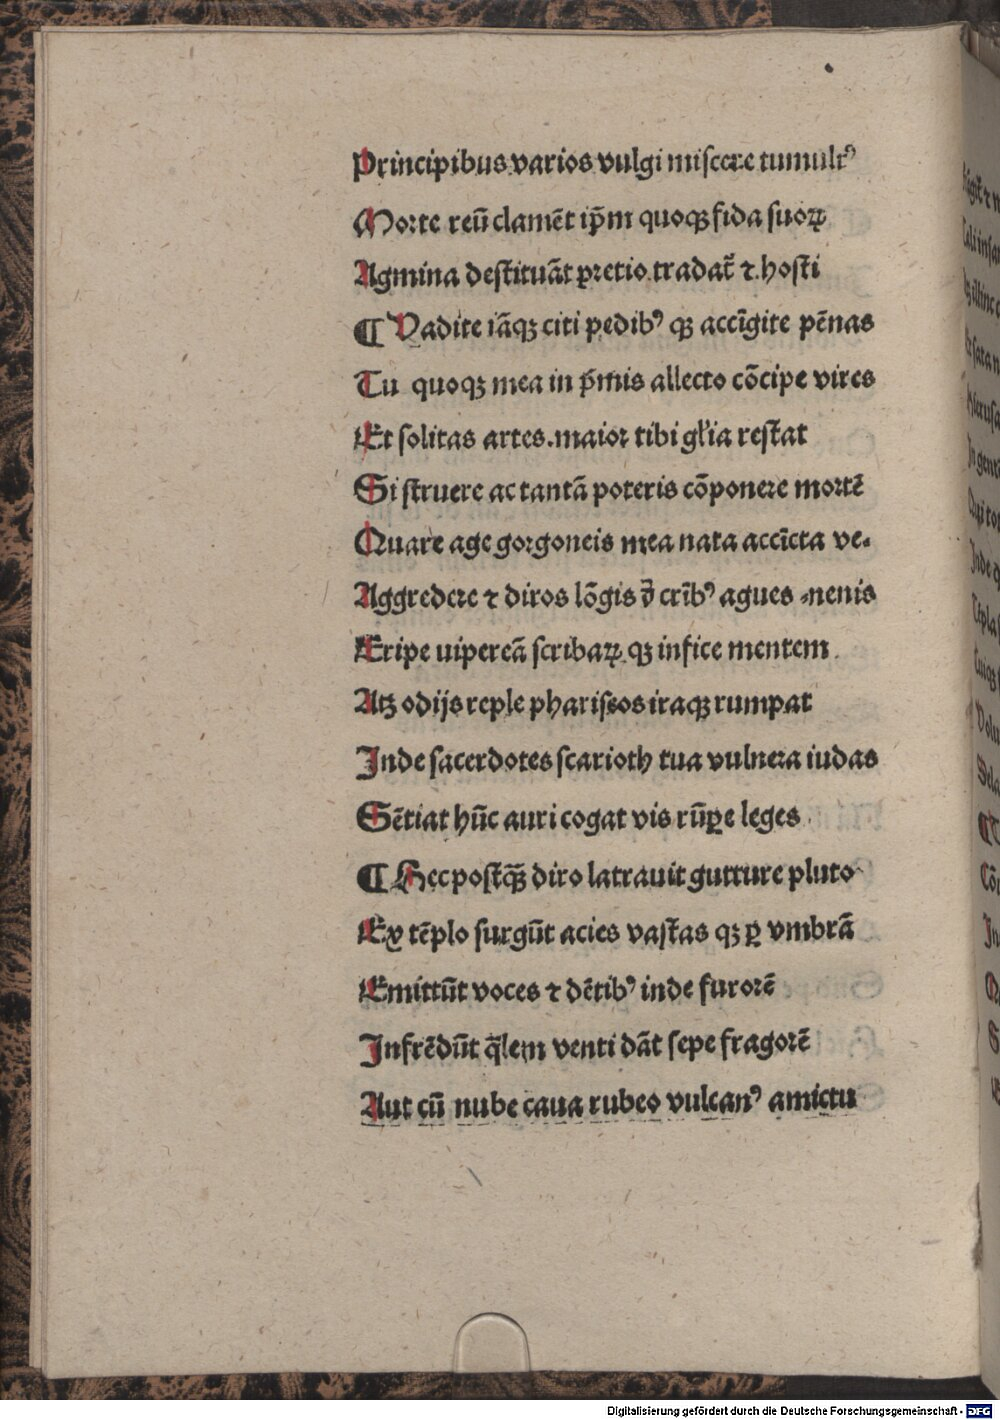 Principibus varios vulgi miscere tumultꝰ
Morte reũ clamẽt ip̃m quoqꝫ fida suoꝝ
Agmina destituãt pretio tradat̃ ⁊ hosti
¶ Vadite iãqꝫ citi pedibꝰ qꝫ accĩgite pẽnas
Tu quoqꝫ mea in p̃mis allecto cõcipe vires
Et solitas artes. maior tibi gl̃ia restat
Si struere ac tantã poteris cõponere mortẽ
Quare age gorgoneis mea nata accĩcta ve⸗
Aggredere ⁊ diros lõgis d̃ crĩbꝰ agues ⸗nenis
Eripe uipereã scribaꝝ qꝫ infice mentem
Atqꝫ odijs reple phariseos iraqꝫ rumpat
Inde sacerdotes scarioth tua vulnera iudas
Sẽtiat hũc auri cogat vis rũꝑe leges
¶ Hec postq̃ꝫ diro latrauit gutture pluto
Ex tẽplo surgũt acies vastas qꝫ ꝑ vmbrã
Emittũt voces ⁊ dẽtibꝰ inde furorẽ
Infrẽdũt q̃lem venti dãt sepe fragorẽ
Aut cũ nube caua rubeo vulcanꝰ amictu
Digitalisierung gefördert durch die Deutsche Forschungsgemeinschaft - DFG